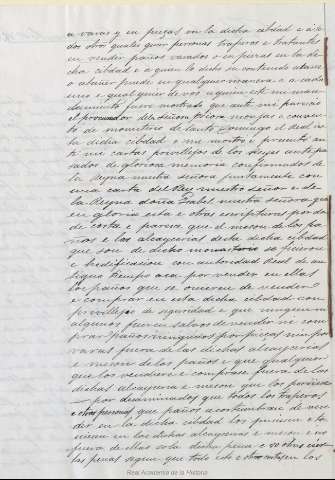 a varas y en piezas en la dicha cibdad e a to
dos otros quales quier personas traperos e tratantes
en vender paños varados o en piezas en la di
cha cibdad e a quien lo dicho va contenido atane
o atañer puede en qualquier manera e a cada
uno e qualquier de vos a quien este mi man
damiento fuere mostrado que ante mi parecio
el procurador de la señora Priora monjas e conven
to de monasterio de Santo Domingo el Real de
la dicha cibdad e me mostro e presento an
te mi cartas previllejos de los Reyes ante pa
sados de gloriosa memoria confirmados de
la Reyna nuestra señora juntamente con
una carta del Rey nuestro señor e de
la Reyna doña Isabel nuestra señora que
en gloria esta e otras escripturas por do
de costa e parece que el meson de los pa
nos e las alcaycerias desta dicha cibdad
que son de dicho monasterio se hicieron
e hedificaron con autoridad Real de an
tiguo tiempo aca por vender en ellas
los paños que se ovieren de vender
e comprar en esta dicha cibdad con
previllejos de seguridad e que ningunos
algunos fuesen salvos de vender ni com
prar paños ningunos por piezas ni por
varas fuera de las dichas alcaycerias
e meson de los paños e que qualquier
que los vendiere e comprase fuera de las
dichas alcayceria e meson que los perdiese
por descaminados que todos los traperos
e otras personas que paños acostumbran de ven
der en la dicha cibdad los pusiesen e to
viesen en las dichas alcayceria e meson e no
fuera de ellas so la dicha pena e so otras cier
tas penas segun que todo esto e otras cosas en los
Real Academia de la Historia